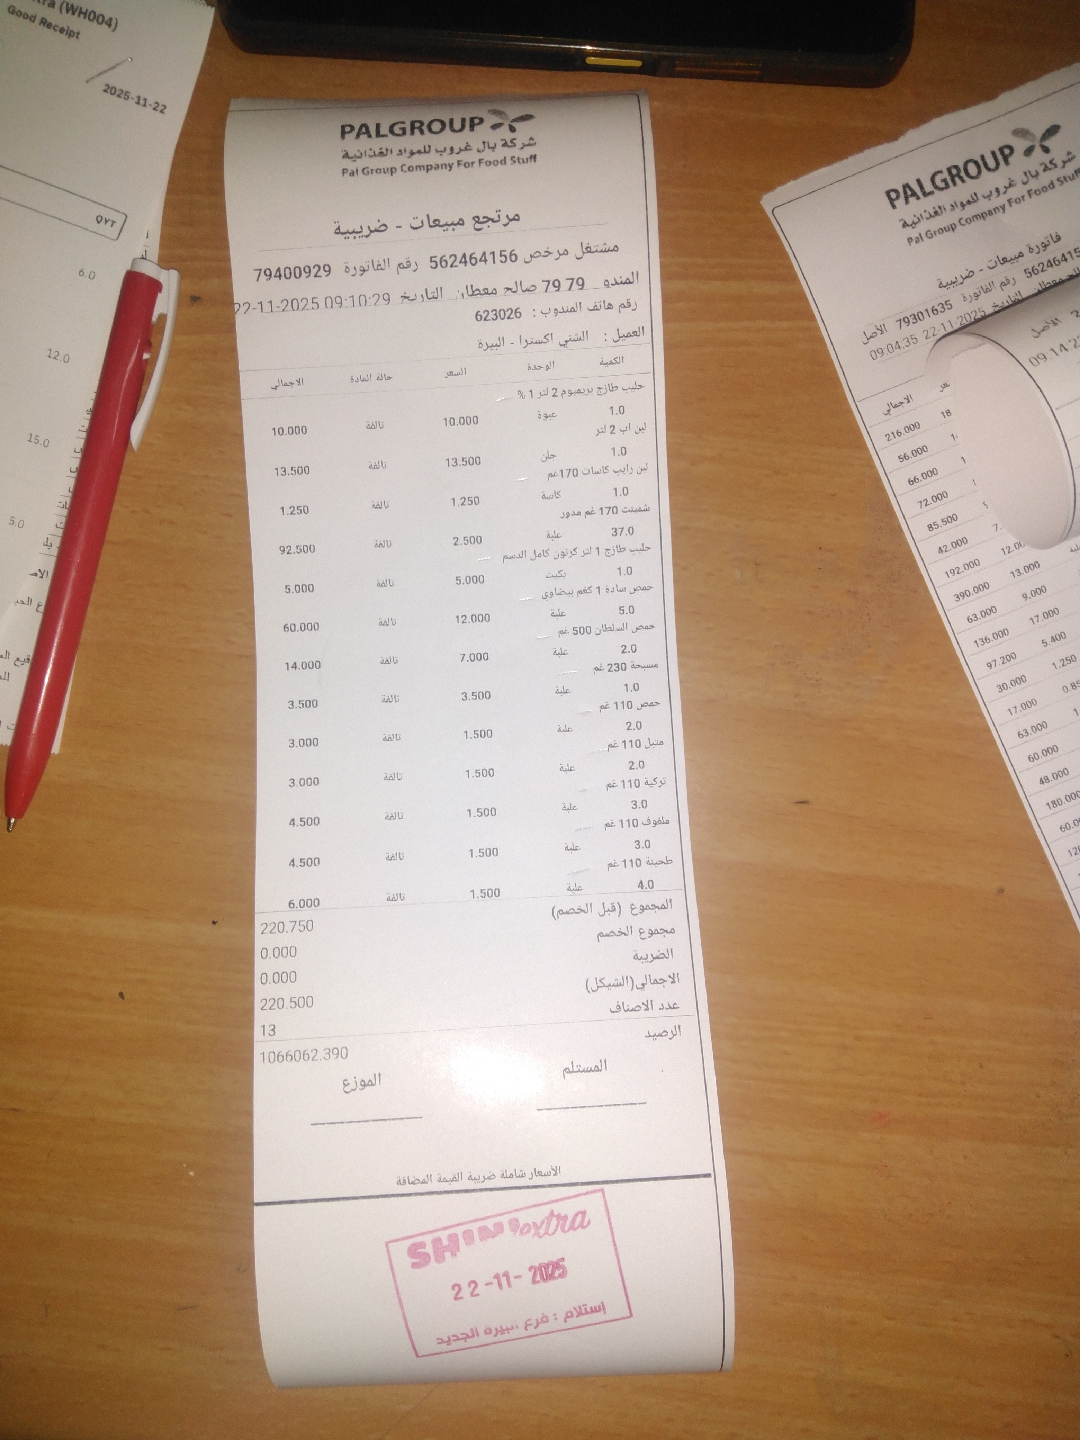 (WH004)
Good Receipt
2025-11-22
QYT
6.0
12.0
15.0
5.0
PALGROUP
شركة بال غروب للمواد الغذائية
Pal Group Company For Food Stuff
مرتجع مبيعات - ضريبية
مشتغل مرخص 562464156 رقم الفاتورة 79400929
المندو 79 79 صالح معطان التاريخ 22-11-2025 09:10:29
رقم هاتف المندوب : 623026
العميل : الشني اكسترا - البيرة
الكمية الوحدة السعر حالة المادة الاجمالي
حليب طازج بريميوم 2 لتر 1 %
1.0 عبوة 10.000 تالفة 10.000
لبن اب 2 لتر
1.0 جلن 13.500 تالفة 13.500
لبن رايب كاسات 170غم
1.0 كاسة 1.250 تالفة 1.250
شمينت 170 غم مدور
37.0 علبة 2.500 تالفة 92.500
حليب طازج 1 لتر كرتون كامل الدسم
1.0 بكيت 5.000 تالفة 5.000
حمص سادة 1 كغم بيضاوي
5.0 علبة 12.000 تالفة 60.000
حمص السلطان 500 غم
2.0 علبة 7.000 تالفة 14.000
مسبحة 230 غم
1.0 علبة 3.500 تالفة 3.500
حمص 110 غم
2.0 علبة 1.500 تالفة 3.000
متبل 110 غم
2.0 علبة 1.500 تالفة 3.000
تركية 110 غم
3.0 علبة 1.500 تالفة 4.500
ملفوف 110 غم
3.0 علبة 1.500 تالفة 4.500
طحينة 110 غم
4.0 علبة 1.500 تالفة 6.000
المجموع (قبل الخصم) 220.750
مجموع الخصم 0.000
الضريبة 0.000
الاجمالي(الشيكل) 220.500
عدد الاصناف 13
الرصيد 1066062.390
المستلم الموزع
الأسعار شاملة ضريبة القيمة المضافة
SHINI extra
22-11-2025
إستلام : فرع البيرة الجديد
PALGROUP
شركة بال غروب للمواد الغذائية
Pal Group Company For Food Stuff
فاتورة مبيعات - ضريبية
رقم الفاتورة 79301635 الأصل
التاريخ 22-11-2025 09:04:35
الأصل
09:14:2
الاجمالي
216.000 18
56.000
66.000
72.000
85.500
42.000 7.
192.000 12.00
390.000 13.000
63.000 9.000
136.000 17.000
97.200 5.400
30.000 1.250
17.000 0.85
63.000
60.000
48.000
180.000
60.0